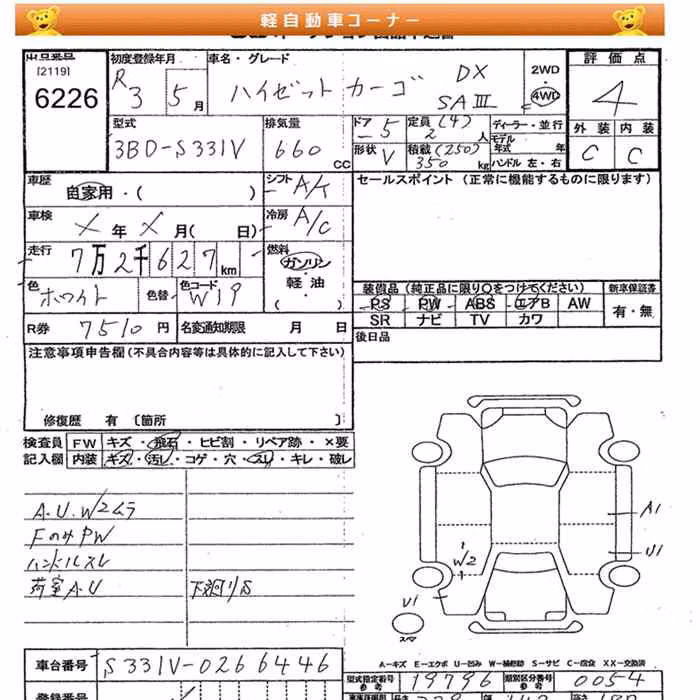 軽自動車コーナー
出品番号
[2119]
6226
初度登録年月
R3 5月
車名・グレード
ハイゼット カーゴ DX
SAⅢ
2WD
4WD
評価点
4
外装 内装
C C
型式
3BD-S331V
排気量
660 CC
ドア 5
形状 V
定員 (4) 2 人
積載 (250) 350 kg
ディーラー・並行
モデル年式 年
ハンドル 左・右
車歴
自家用・( )
シフト A/T
セールスポイント (正常に機能するものに限ります)
車検
X 年 X 月( 日)
冷房 A/C
走行
7万2千627km
燃料
ガソリン
・
軽油
( )
色
ホワイト
色替
色コード
W19
装備品 (純正品に限り○をつけてください)
新車保証書
PS PW ABS エアB AW
有・無
SR ナビ TV カワ
R券 7510 円
名変通知期限 月 日
後日品
注意事項申告欄(不具合内容等は具体的に記入して下さい)
修復歴 有 〔箇所 〕
検査員 FW キズ・飛石・ヒビ割・リペア跡・×要
記入欄 内装 キズ・汚レ・コゲ・穴・スレ・キレ・破レ
A.U.W2ムラ
FのみPW
ハンドルスレ
荷室A.U 下廻りS
A1
U1
W2
U1
スマ
A-キズ E-エクボ U-凹み W-補修跡 S-サビ C-腐食 XX-交換済
車台番号 S331V-0266446
型式指定番号 参考 19796
類別区分番号 参考 0054